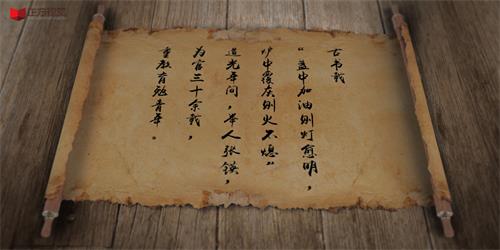 古书载
“盏中加油则灯愈明，
炉中覆灰则火不熄”
道光年间，举人张锳，
为官三十余载，
重教育勉青年。